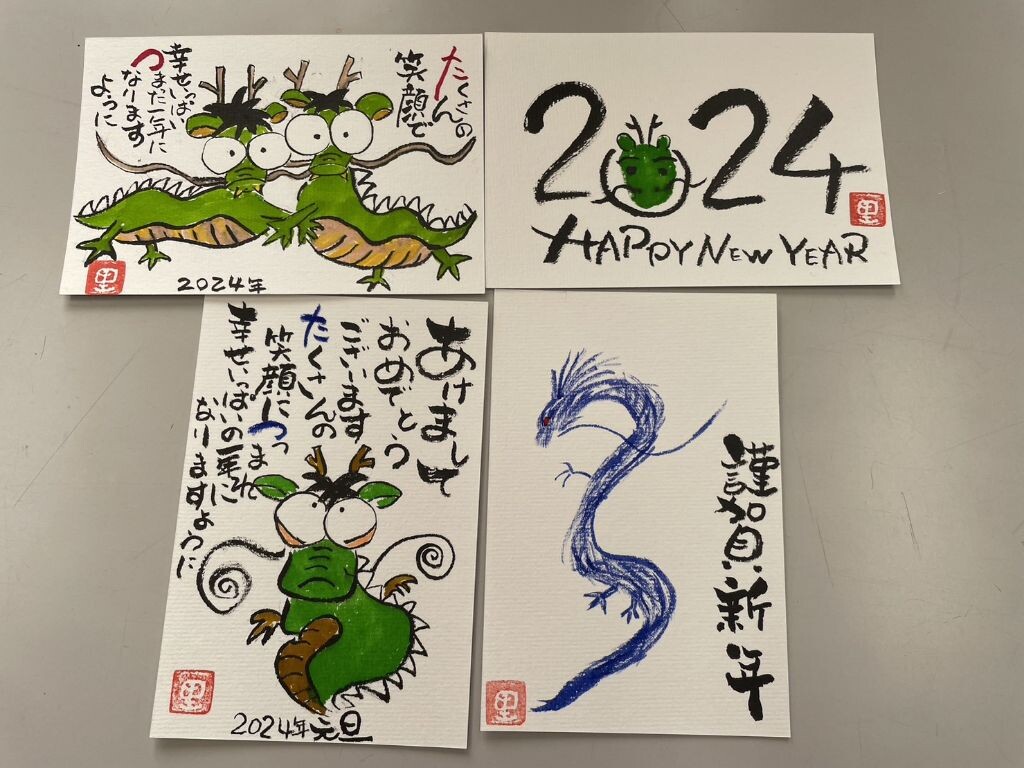 たくさんの
笑顔で
幸せいっぱい
つまった一年に
なります
ように
2024年
里
2024
HAPPY NEW YEAR
里
あけまして
おめでとう
ございます
たくさんの
笑顔につつまれ
幸せいっぱいの一年に
なりますように
2024年元旦
里
謹賀新年
里